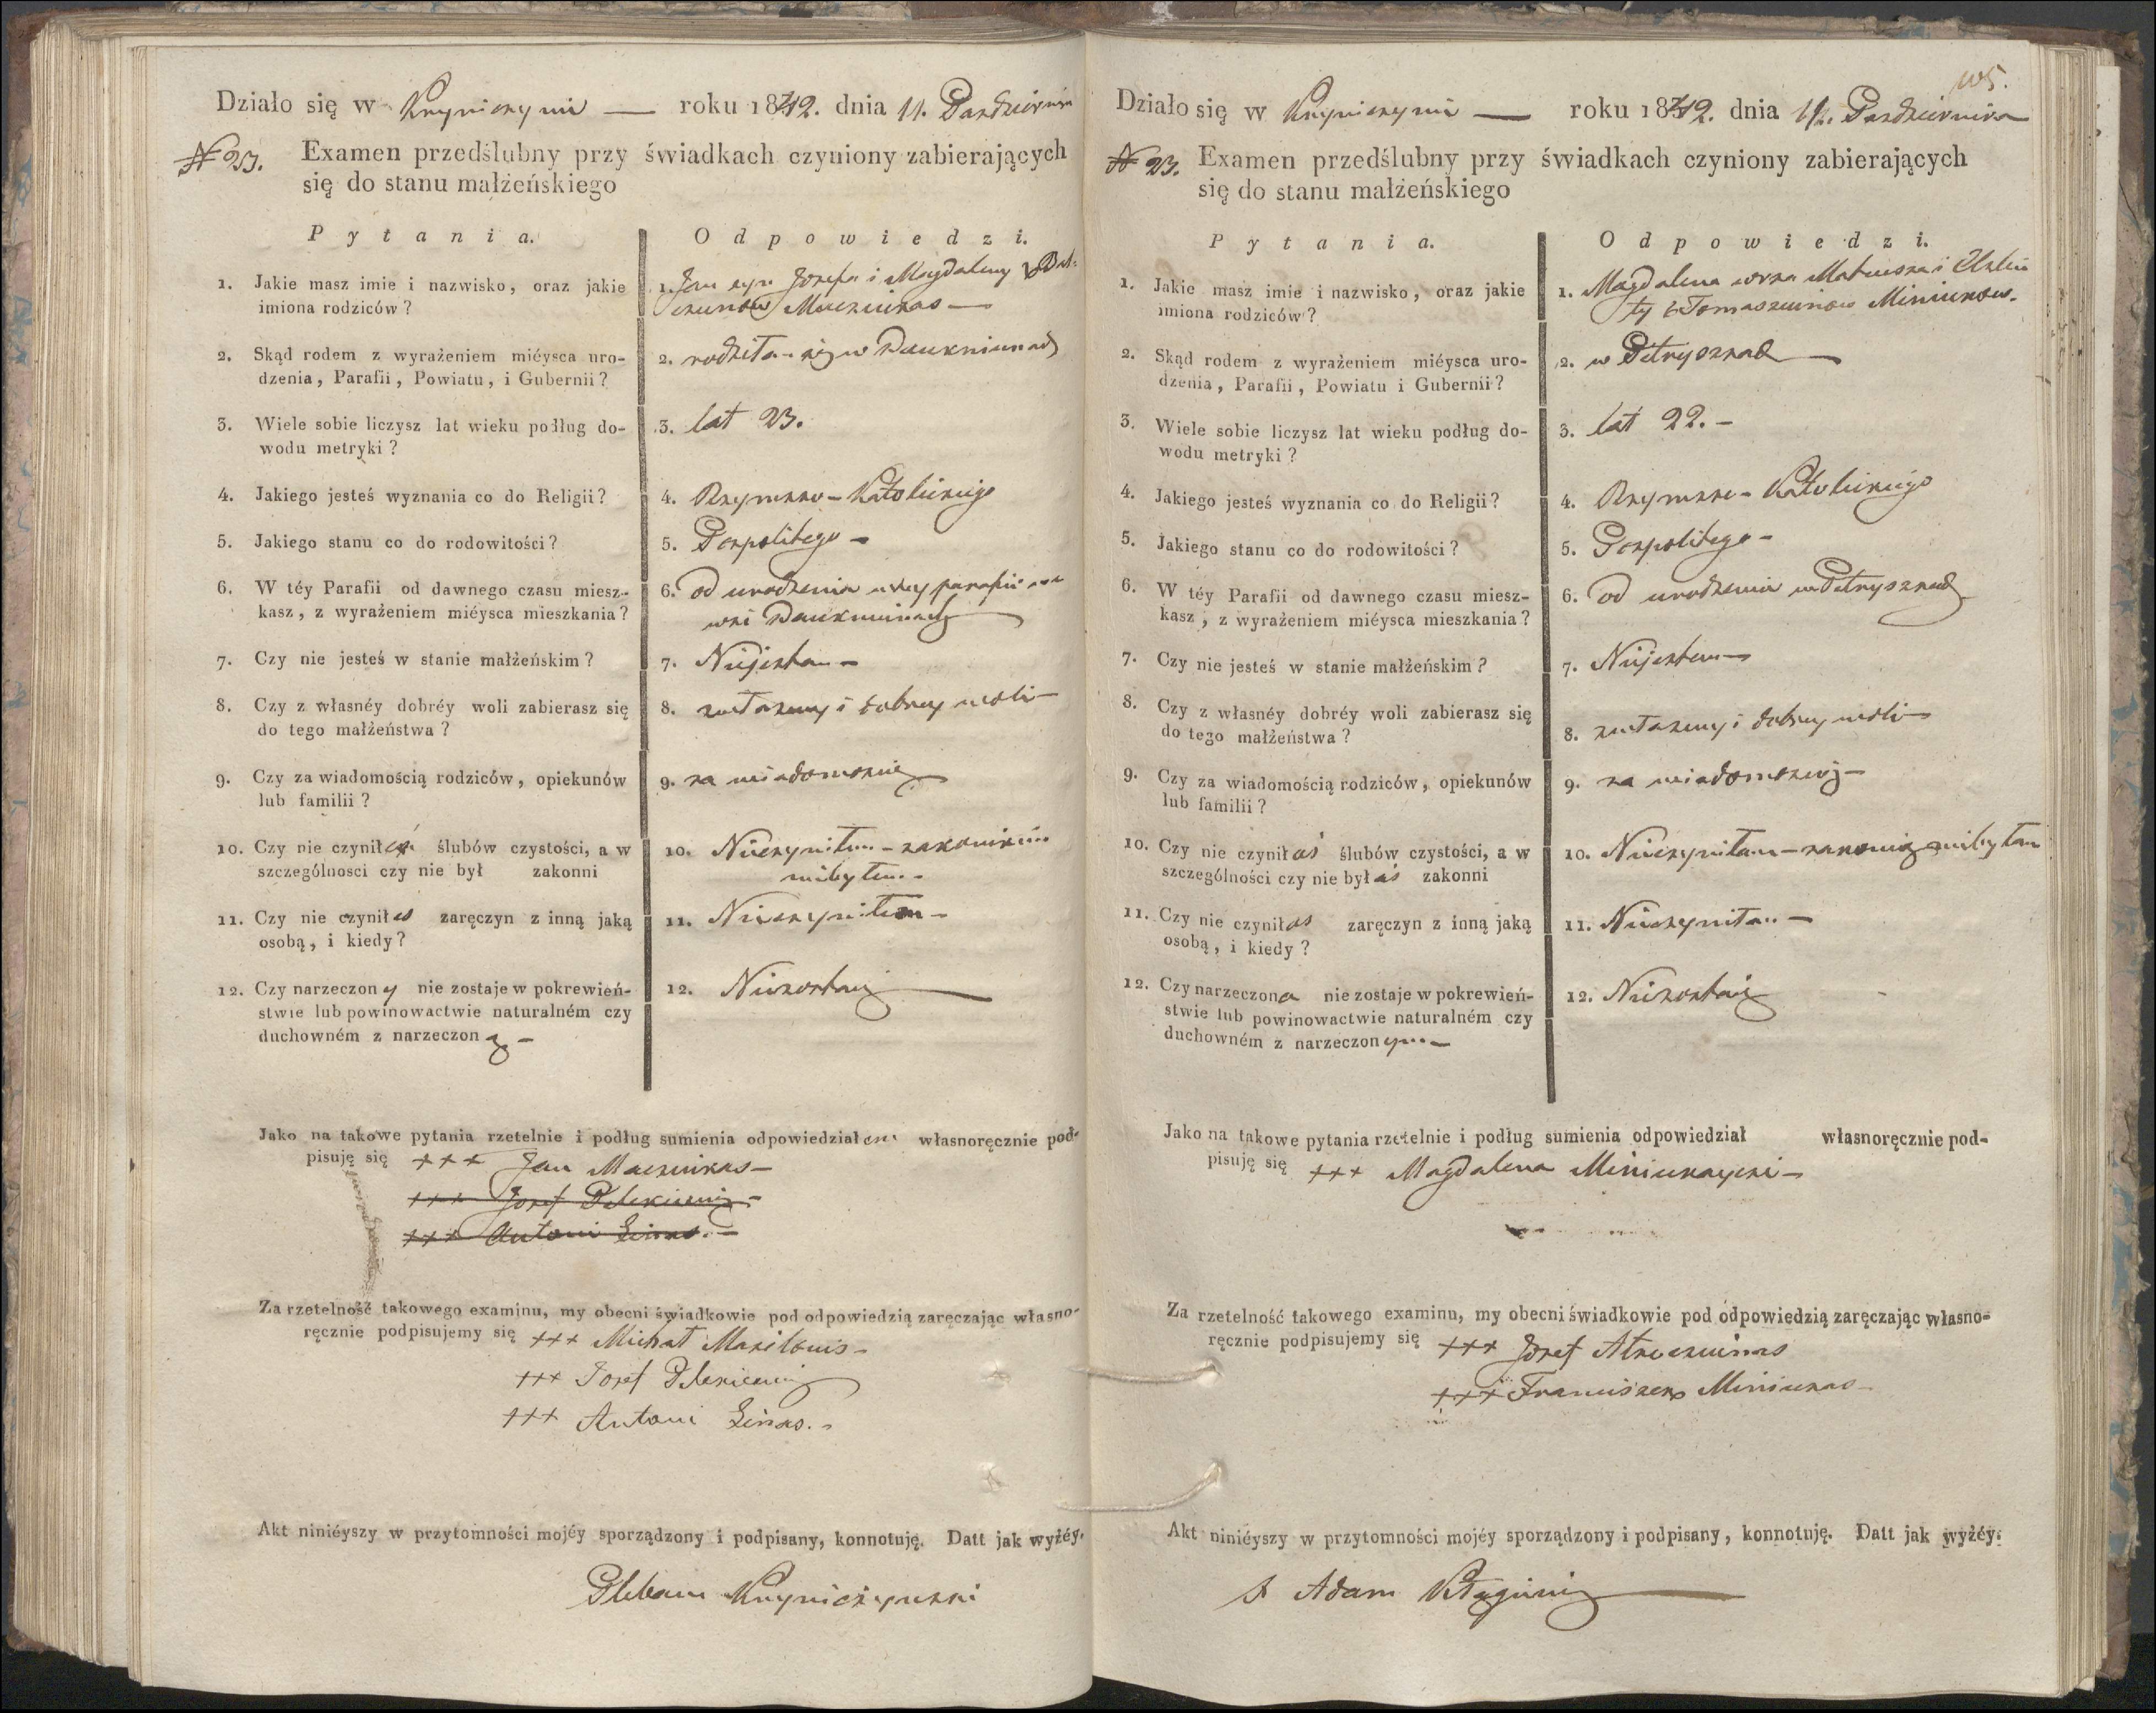 Działo się w Knyniczynie — roku 1842. dnia 11. Pazdziernika
N 23. Examen przedślubny przy świadkach czyniony zabierających
się do stanu małżeńskiego
Pytania. Odpowiedzi.
1. Jakie masz imie i nazwisko, oraz jakie
imiona rodziców?
1. Jan syn Jozefa i Magdaleny z
Maczukas —
2. Skąd rodem z wyrażeniem miéysca uro-
dzenia, Parafii, Powiatu, i Gubernii?
2. się w
3. Wiele sobie liczysz lat wieku podług do-
wodu metryki?
3. lat 23.
4. Jakiego jesteś wyznania co do Religii?
4. Rzymsko-Katolickiego
5. Jakiego stanu co do rodowitości?
5. Pospolitego -
6. W téy Parafii od dawnego czasu miesz-
kasz, z wyrażeniem miéysca mieszkania?
6. od urodzenia w tey parafii we
wsi
7. Czy nie jesteś w stanie małżeńskim?
7. Niejestem -
8. Czy z własnéy dobréy woli zabierasz się
do tego małżeństwa?
8. z własney i dobrey woli -
9. Czy za wiadomością rodziców, opiekunów
lub familii?
9. za wiadomością
10. Czy nie czyniłeś ślubów czystości, a w
szczególnosci czy nie był zakonni
10. Nieczyniłem - zakonnikiem
niebyłem -
11. Czy nie czyniłes zaręczyn z inną jaką
osobą, i kiedy?
11. Nieczyniłem -
12. Czy narzeczony nie zostaje w pokrewień-
stwie lub powinowactwie naturalném czy
duchowném z narzeczoną -
12. Niezostaię
Jako na takowe pytania rzetelnie i podług sumienia odpowiedziałem własnoręcznie pod-
pisuję się +++ Jan Maczukas -
+++ Jozef
+++ Antoni Linas. -
Za rzetelność takowego examinu, my obecni świadkowie pod odpowiedzią zaręczając własno-
ręcznie podpisujemy się +++ Michał
+++ Jozef
+++ Antoni Linas. -
Akt niniéyszy w przytomności mojéy sporządzony i podpisany, konnotuję. Datt jak wyżéy.
Pleban Knyniczynski
105.
Działo się w Knyniczynie — roku 1842. dnia 11. Pazdziernika
N 23. Examen przedślubny przy świadkach czyniony zabierających
się do stanu małżeńskiego
Pytania. Odpowiedzi.
1. Jakie masz imie i nazwisko, oraz jakie
imiona rodziców?
1. Magdalena corka Mateusza i Elzbie
ty z Tomaszunow Miniukow.
2. Skąd rodem z wyrażeniem miéysca uro-
dzenia, Parafii, Powiatu i Gubernii?
2. w Petryszkach
3. Wiele sobie liczysz lat wieku podług do-
wodu metryki?
3. lat 22. -
4. Jakiego jesteś wyznania co do Religii?
4. Rzymsko-Katolickiego
5. Jakiego stanu co do rodowitości?
5. Pospolitego -
6. W téy Parafii od dawnego czasu miesz-
kasz, z wyrażeniem miéysca mieszkania?
6. od urodzenia w Petryszkach
7. Czy nie jesteś w stanie małżeńskim?
7. Niejestem -
8. Czy z własnéy dobréy woli zabierasz się
do tego małżeństwa?
8. z własney i dobrey woli -
9. Czy za wiadomością rodziców, opiekunów
lub familii?
9. za wiadomością -
10. Czy nie czyniłaś ślubów czystości, a w
szczególności czy nie byłaś zakonni
10. Nieczyniłam - zakonnicą niebyłam
11. Czy nie czyniłas zaręczyn z inną jaką
osobą, i kiedy?
11. Nieczyniłam -
12. Czy narzeczona nie zostaje w pokrewień-
stwie lub powinowactwie naturalném czy
duchowném z narzeczonym -
12. Niezostaię
Jako na takowe pytania rzetelnie i podług sumienia odpowiedział własnoręcznie pod-
pisuję się +++ Magdalena -
Za rzetelność takowego examinu, my obecni świadkowie pod odpowiedzią zaręczając własno-
ręcznie podpisujemy się +++ Jozef
+++ Franciszek Miniukas -
Akt niniéyszy w przytomności mojéy sporządzony i podpisany, konnotuję. Datt jak wyżéy.
X Adam